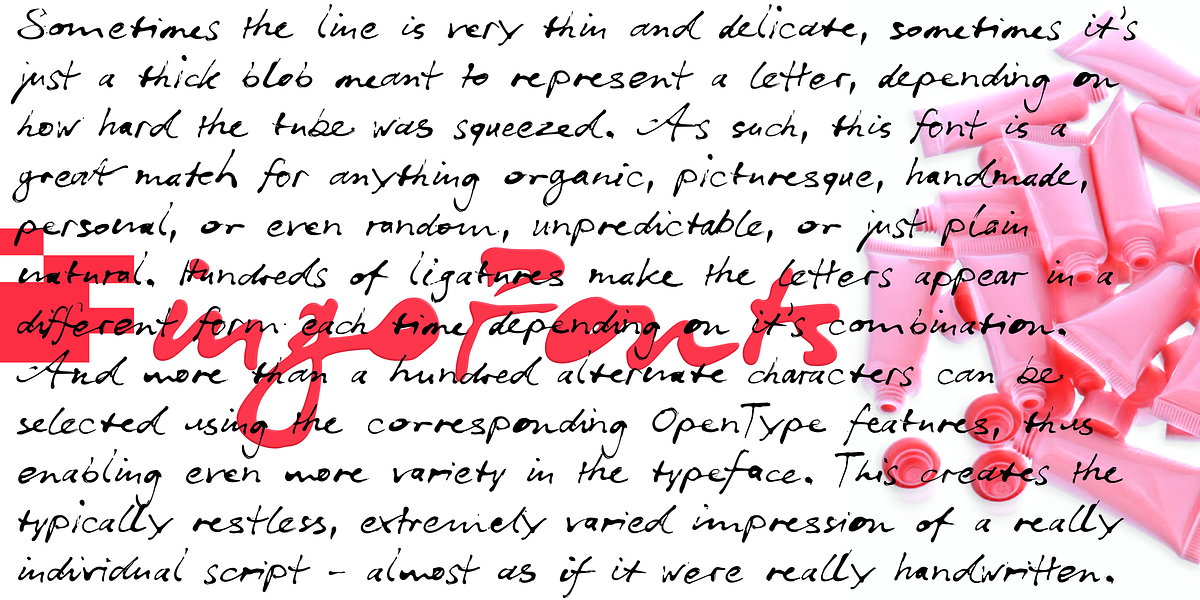 Sometimes the line is very thin and delicate, sometimes it's
just a thick blob meant to represent a letter, depending on
how hard the tube was squeezed. As such, this font is a
great match for anything organic, picturesque, handmade,
personal, or even random, unpredictable, or just plain
natural. Hundreds of ligatures make the letters appear in a
different form each time depending on it's combination.
And more than a hundred alternate characters can be
selected using the corresponding OpenType features, thus
enabling even more variety in the typeface. This creates the
typically restless, extremely varied impression of a really
individual script - almost as if it were really handwritten.
FingoFonts